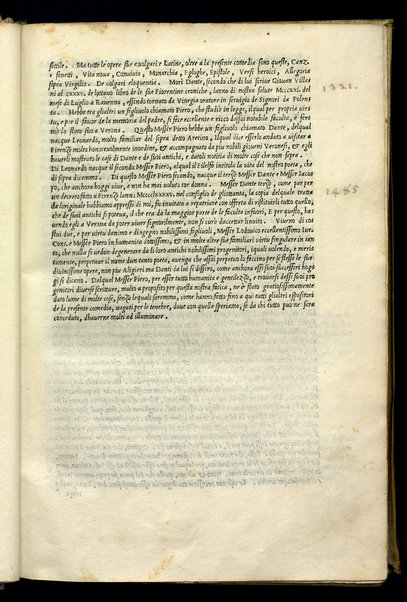 settile. Ma tutte l'opere sue e volgari e Latine, oltre a la presente comedia sono queste, Canz.
e sonetti, Vita nova, Convivio, Monarchia, Egloghe, Epistole, Versi heroici, Allegoria
sopra Virgilio. De volgari eloquentia. Morì Dante, secondo che di lui scrive Giovan Villa
ni al CXXXV. de l'ottavo libro de le sue Fiorentine croniche, l'anno di nostra salute MCCCXXI. del
mese di Luglio a Ravenna, essendo tornato da Vinegia oratore in servigio de Signori da Polen
ta. Hebbe tra gli altri un figliuolo chiamato Piero, che studiò in legge, il qual per propria vir
tu, e per il favor de la memoria del padre, si fece eccellente e ricco d'assai notabile facultà, e fer
mò lo stato suo a Verona. Questo Messer Piero hebbe un figliuolo chiamato Dante, del qual
nacque Leonardo, molto familiare del sopra detto Aretino, il qual dice esserli andato a visitare a
Firenze molto honorevolmente in ordine, & accompagnato da piu nobili giovani Veronesi, & egli
haverli mostrato le case di Dante e de suoi antichi, e datoli notitia di molte cose che non sapea.
Di Leonardo nacque il secondo Messer Piero, al qual il Filelfo intitola la vita del nostro poeta, che
di sopra dicemmo. Di questo Messer Piero secondo, nacque il terzo Messer Dante e Messer Iaco
po, che anchora hoggi vive, e non ha mai voluto tor donna. Messer Dante terzo, come per per
un decreto fatto a Firenze l'anno MCCCCLXXXV. nel consiglio de gli ottanta, la copia del quale tratta
da l'originale habbiamo appresso di noi, fu invitato a repatriare con offerta di restituirli tutto quello,
che de suoi antichi si poteva, il che era da la maggior parte de le facultà infuori, E per questo, ha
vendo egli a Verona da poter vivere signorilmente, non si curò d'accettar l'invito. Vivono di co
stui due, e per virtu d'animo e d'ingegno nobilissimi figliuoli, Messer Lodovico eccellentissimo Iur
Cons. e Messer Piero in humanita dottissimo, & in molte altre sue familiari virtu singulare in tan
to, che nulla si vedon degenerare da li loro antichi nobilissimi progenitori, i quali volendo, e meri
tamente, perpetuar il nome di un tanto poeta, avenga che assai perpetuo lo faccino per se stesse le sue
divinissime opere, non piu Alipieri ma Danti da lui si dissero, come anchora essi suoi successori hog
gi si dicano. Dal qual Messer Piero, per esser tutto humanita e gentilezza, e trovarsi de suoi pro
genitori diverse scritture, molto a proposito per questa nostra fatica, ne è stato gratiosissimamente
dato lume di molte cose, senza le quali saremmo, come hanno fatto fino a qui tutti gli altri espositori
de la presente comedia, vegati per le tenebre, dove con quelle speriamo, se da chi tutto puo ne sera
conceduto, d'haverne molti ad illuminare.
1321.
1485